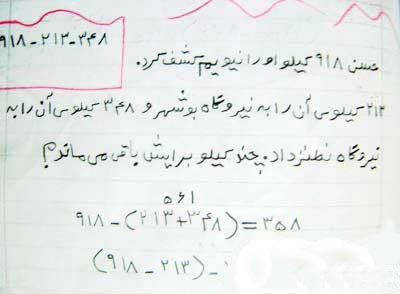 ۹۱۸-۲۱۳-۳۴۸
حسن ۹۱۸ کیلو اورانیویم کشف کرد.
۲۱۳ کیلوی آن را به نیروگاه بوشهر و ۳۴۸ کیلوی آن را به
نیروگاه نطنز داد. چند کیلو برایش باقی می ماند؟
۵۶۱
۹۱۸-(۲۱۳+۳۴۸)=۳۵۸
(۹۱۸-۲۱۳)-